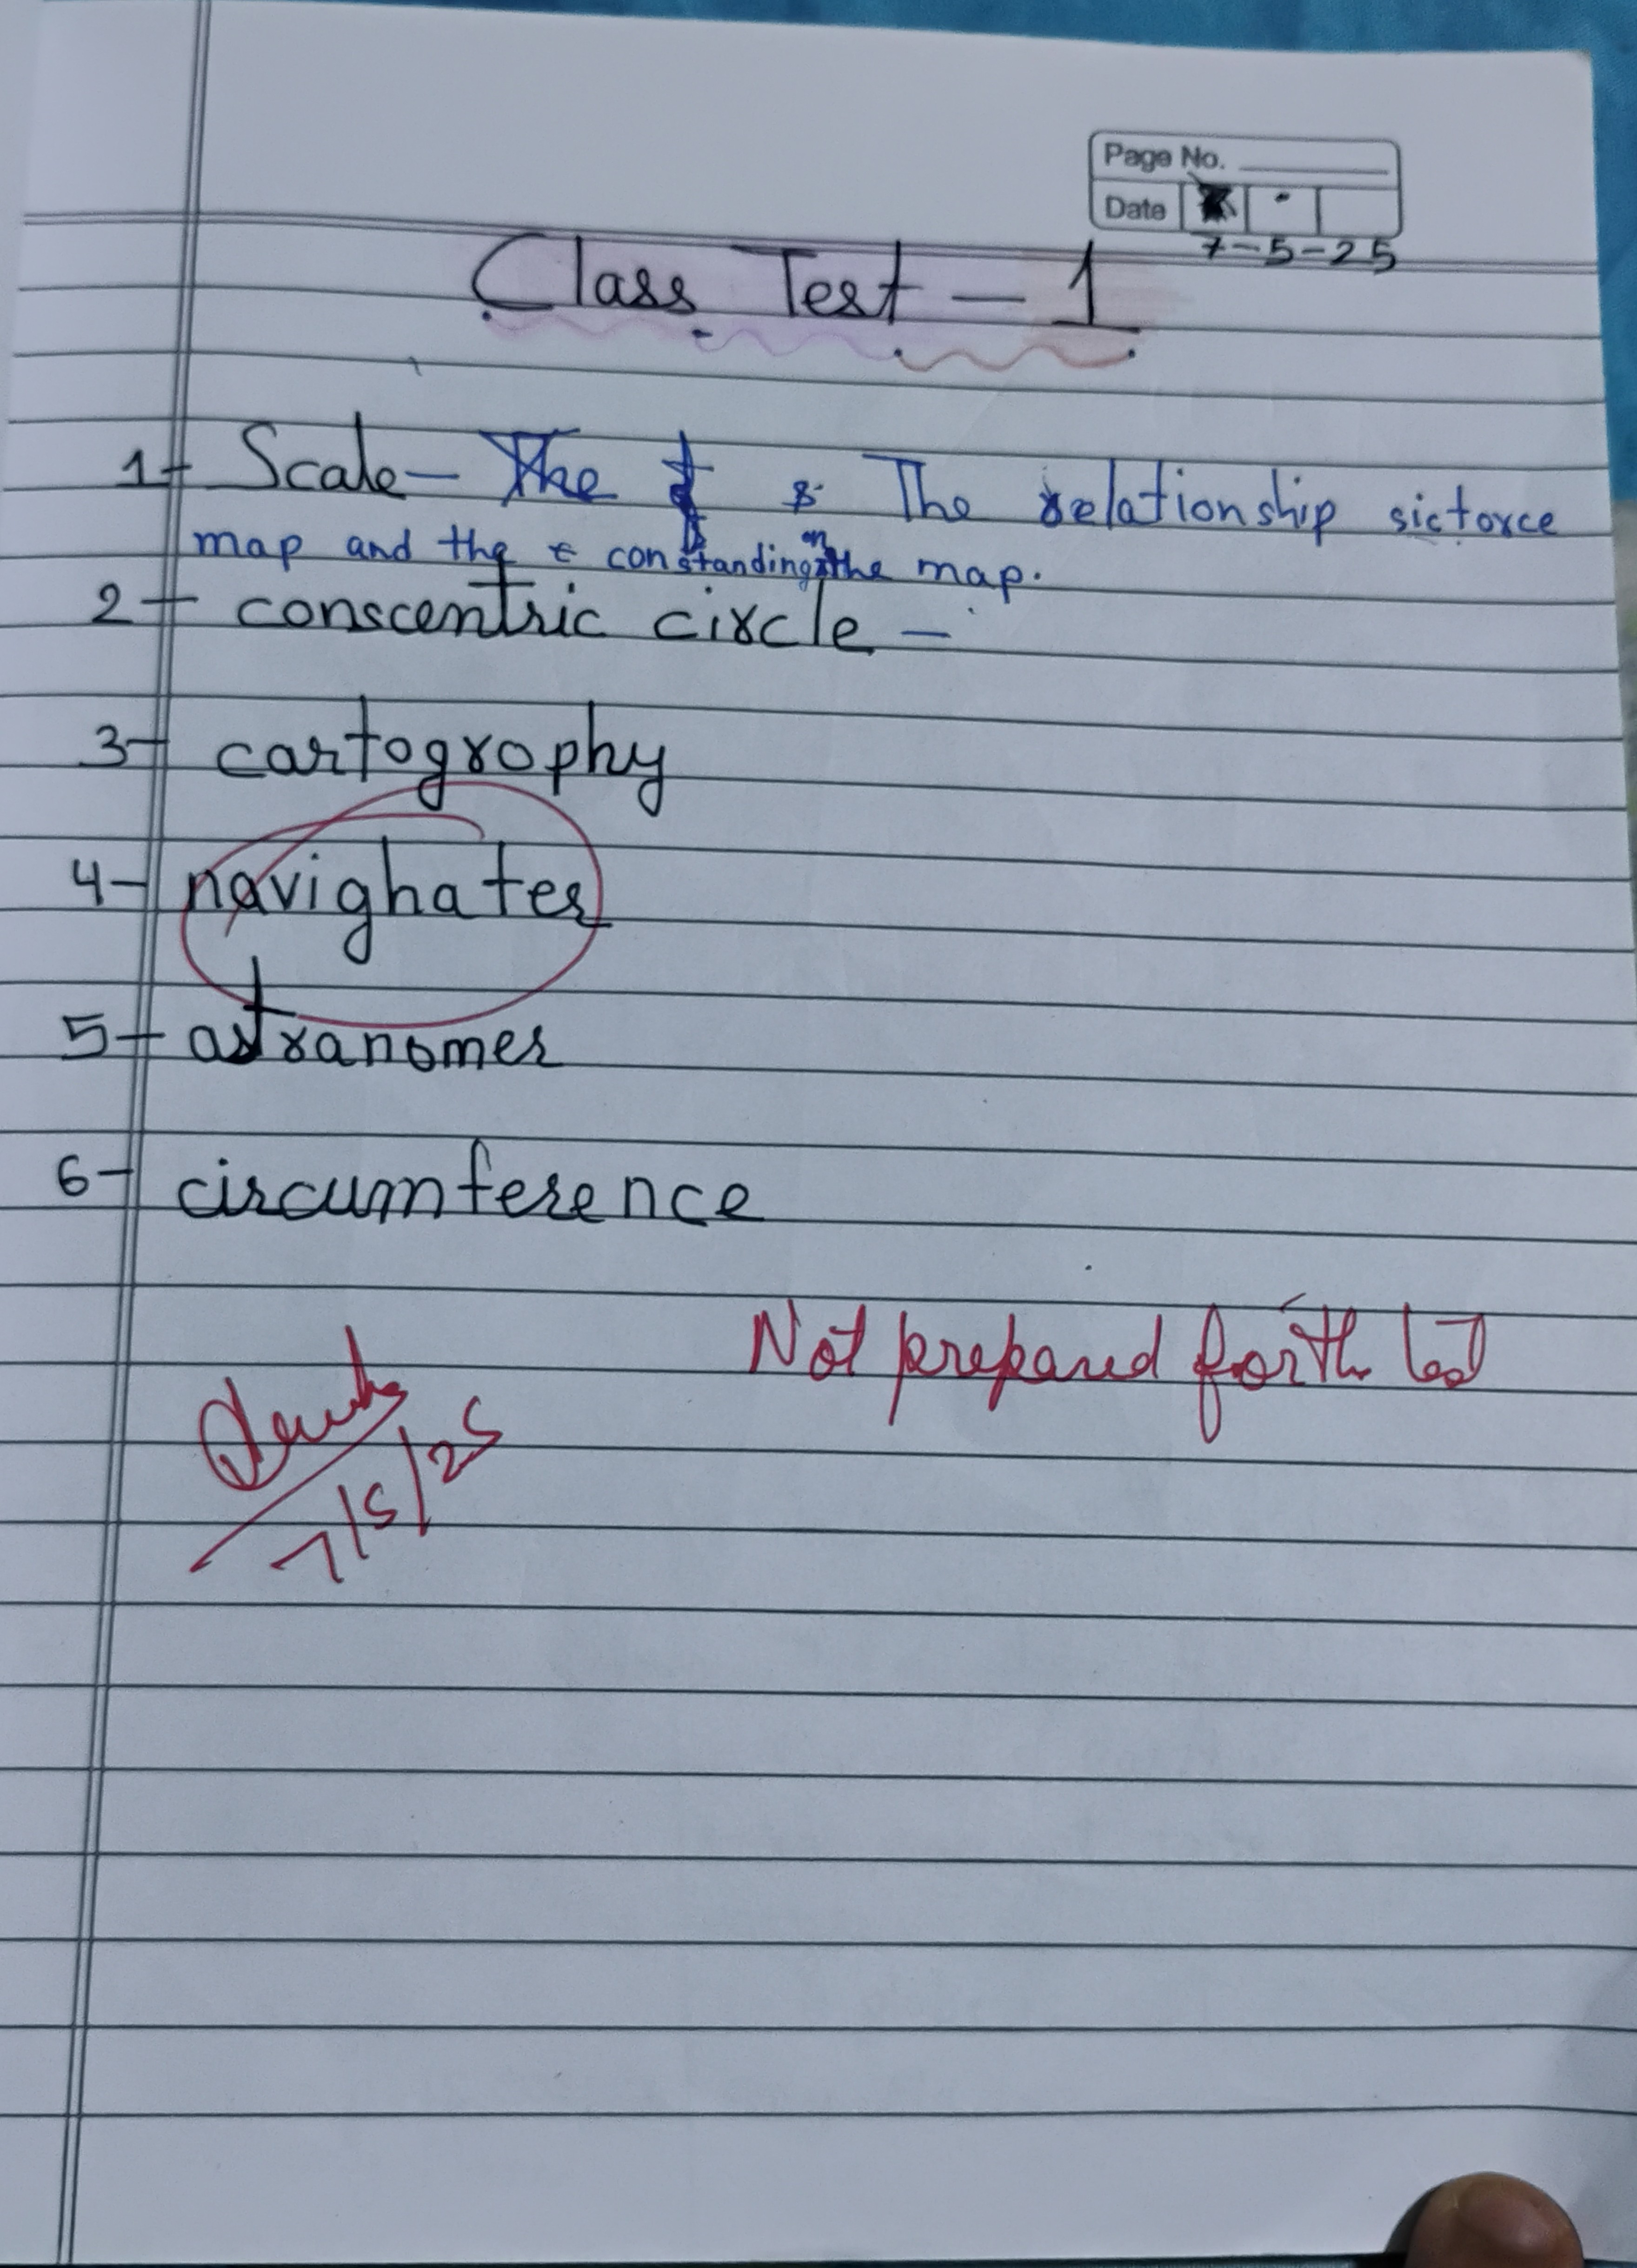 Page No.
Date
7-5-25
Class Test - 1
1- Scale - The The relationship sictorce
map and the constanding on the map.
2- conscentric circle -
3- cartogrophy
4- navighater
5- astranomer
6- circumference
Not prepared for the test
7/5/25